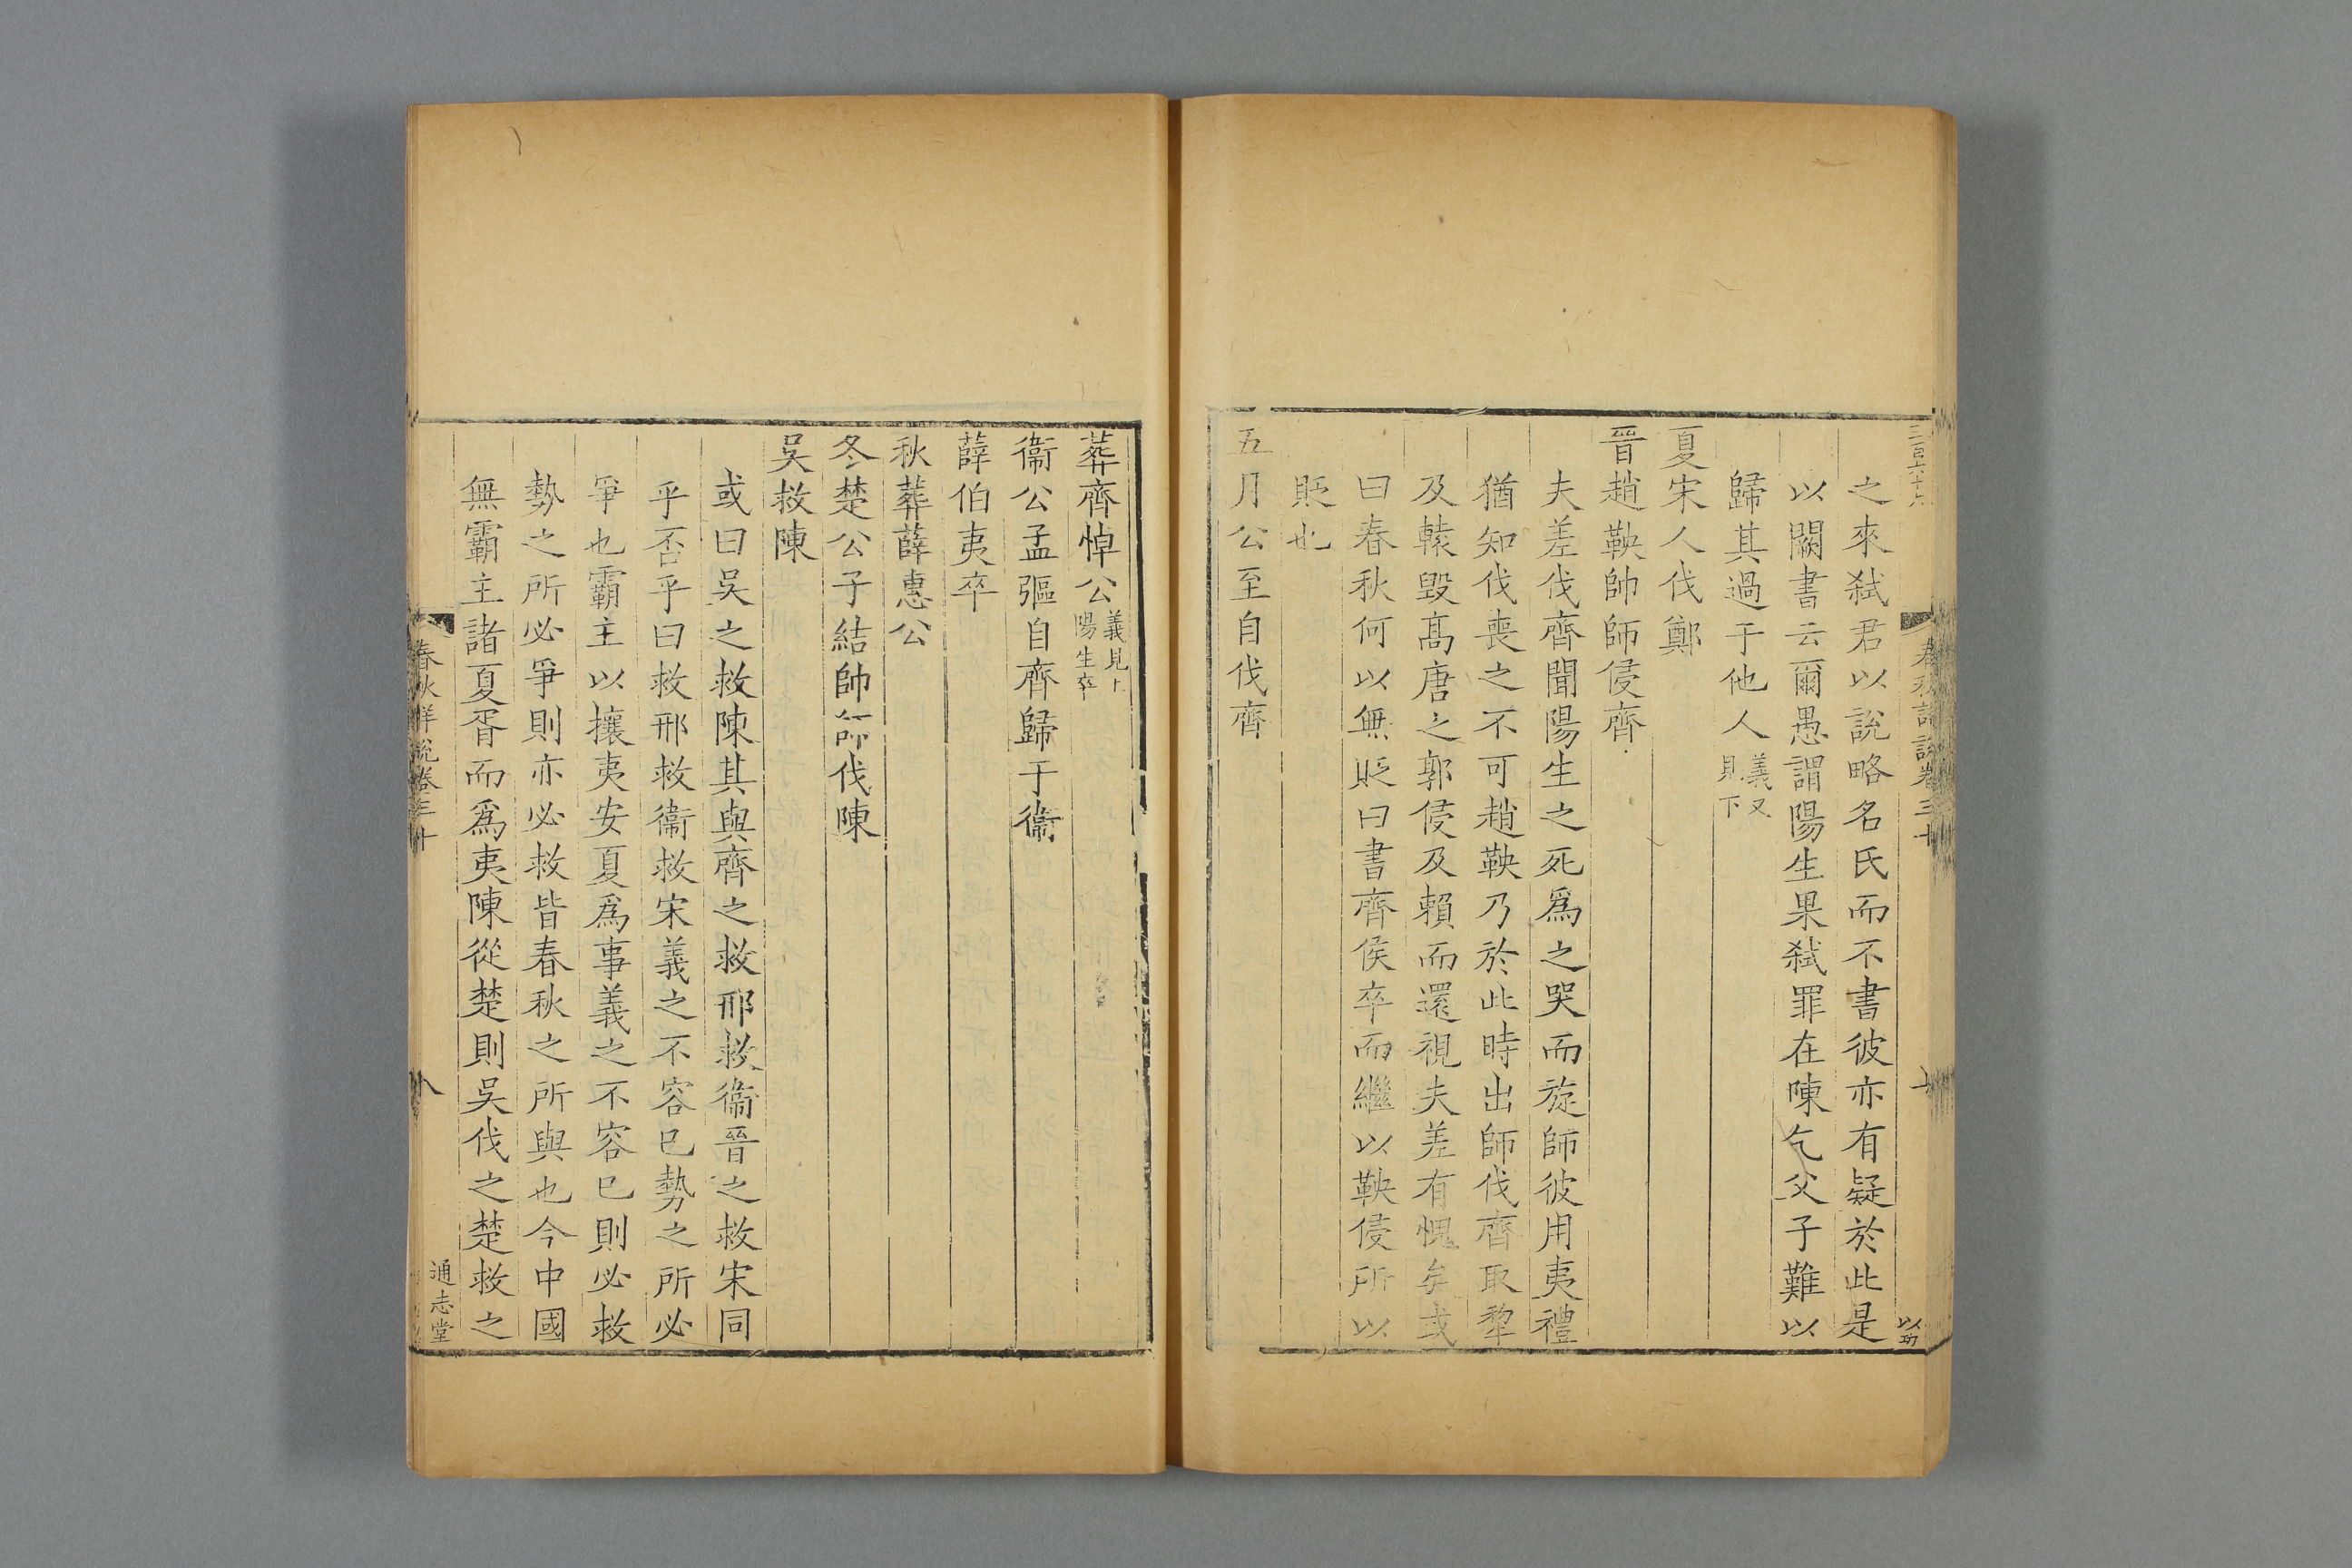 三百六十六
春秋詳說卷三十
以功
之來弑君以說略名氏而不書彼亦有疑於此是
以闕書云爾愚謂陽生果弑罪在陳乞父子難以
歸其過于他人義又見下
夏宋人伐鄭
晉趙鞅帥師侵齊
夫差伐齊聞陽生之死爲之哭而旋師彼用夷禮
猶知伐喪之不可趙鞅乃於此時出師伐齊取犂
及轅毀髙唐之郭侵及賴而還視夫差有愧矣或
曰春秋何以無貶曰書齊侯卒而繼以鞅侵所以
貶也
五月公至自伐齊
葬齊悼公義見上陽生卒
衞公孟彄自齊歸于衞
薛伯夷卒
秋葬薛惠公
冬楚公子結帥師伐陳
吳救陳
或曰吳之救陳其與齊之救邢救衞晉之救宋同
乎否乎曰救邢救衞救宋義之不容已勢之所必
爭也霸主以攘夷安夏爲事義之不容已則必救
勢之所必爭則亦必救皆春秋之所與也今中國
無霸主諸夏胥而爲夷陳從楚則吳伐之楚救之
春秋詳說卷三十
八
通志堂